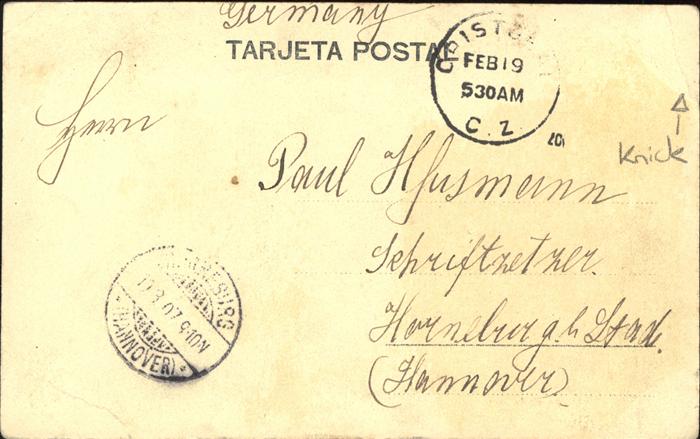 Germany
TARJETA POSTAL
CRISTOBAL
FEB 19
530AM
C. Z.
Herrn
Knick
Paul Husmann
Schriftzetzer.
Horneburg a. h. Stad.
(Hannover)
HORNEBURG
3 07 9-10N
(HANNOVER)